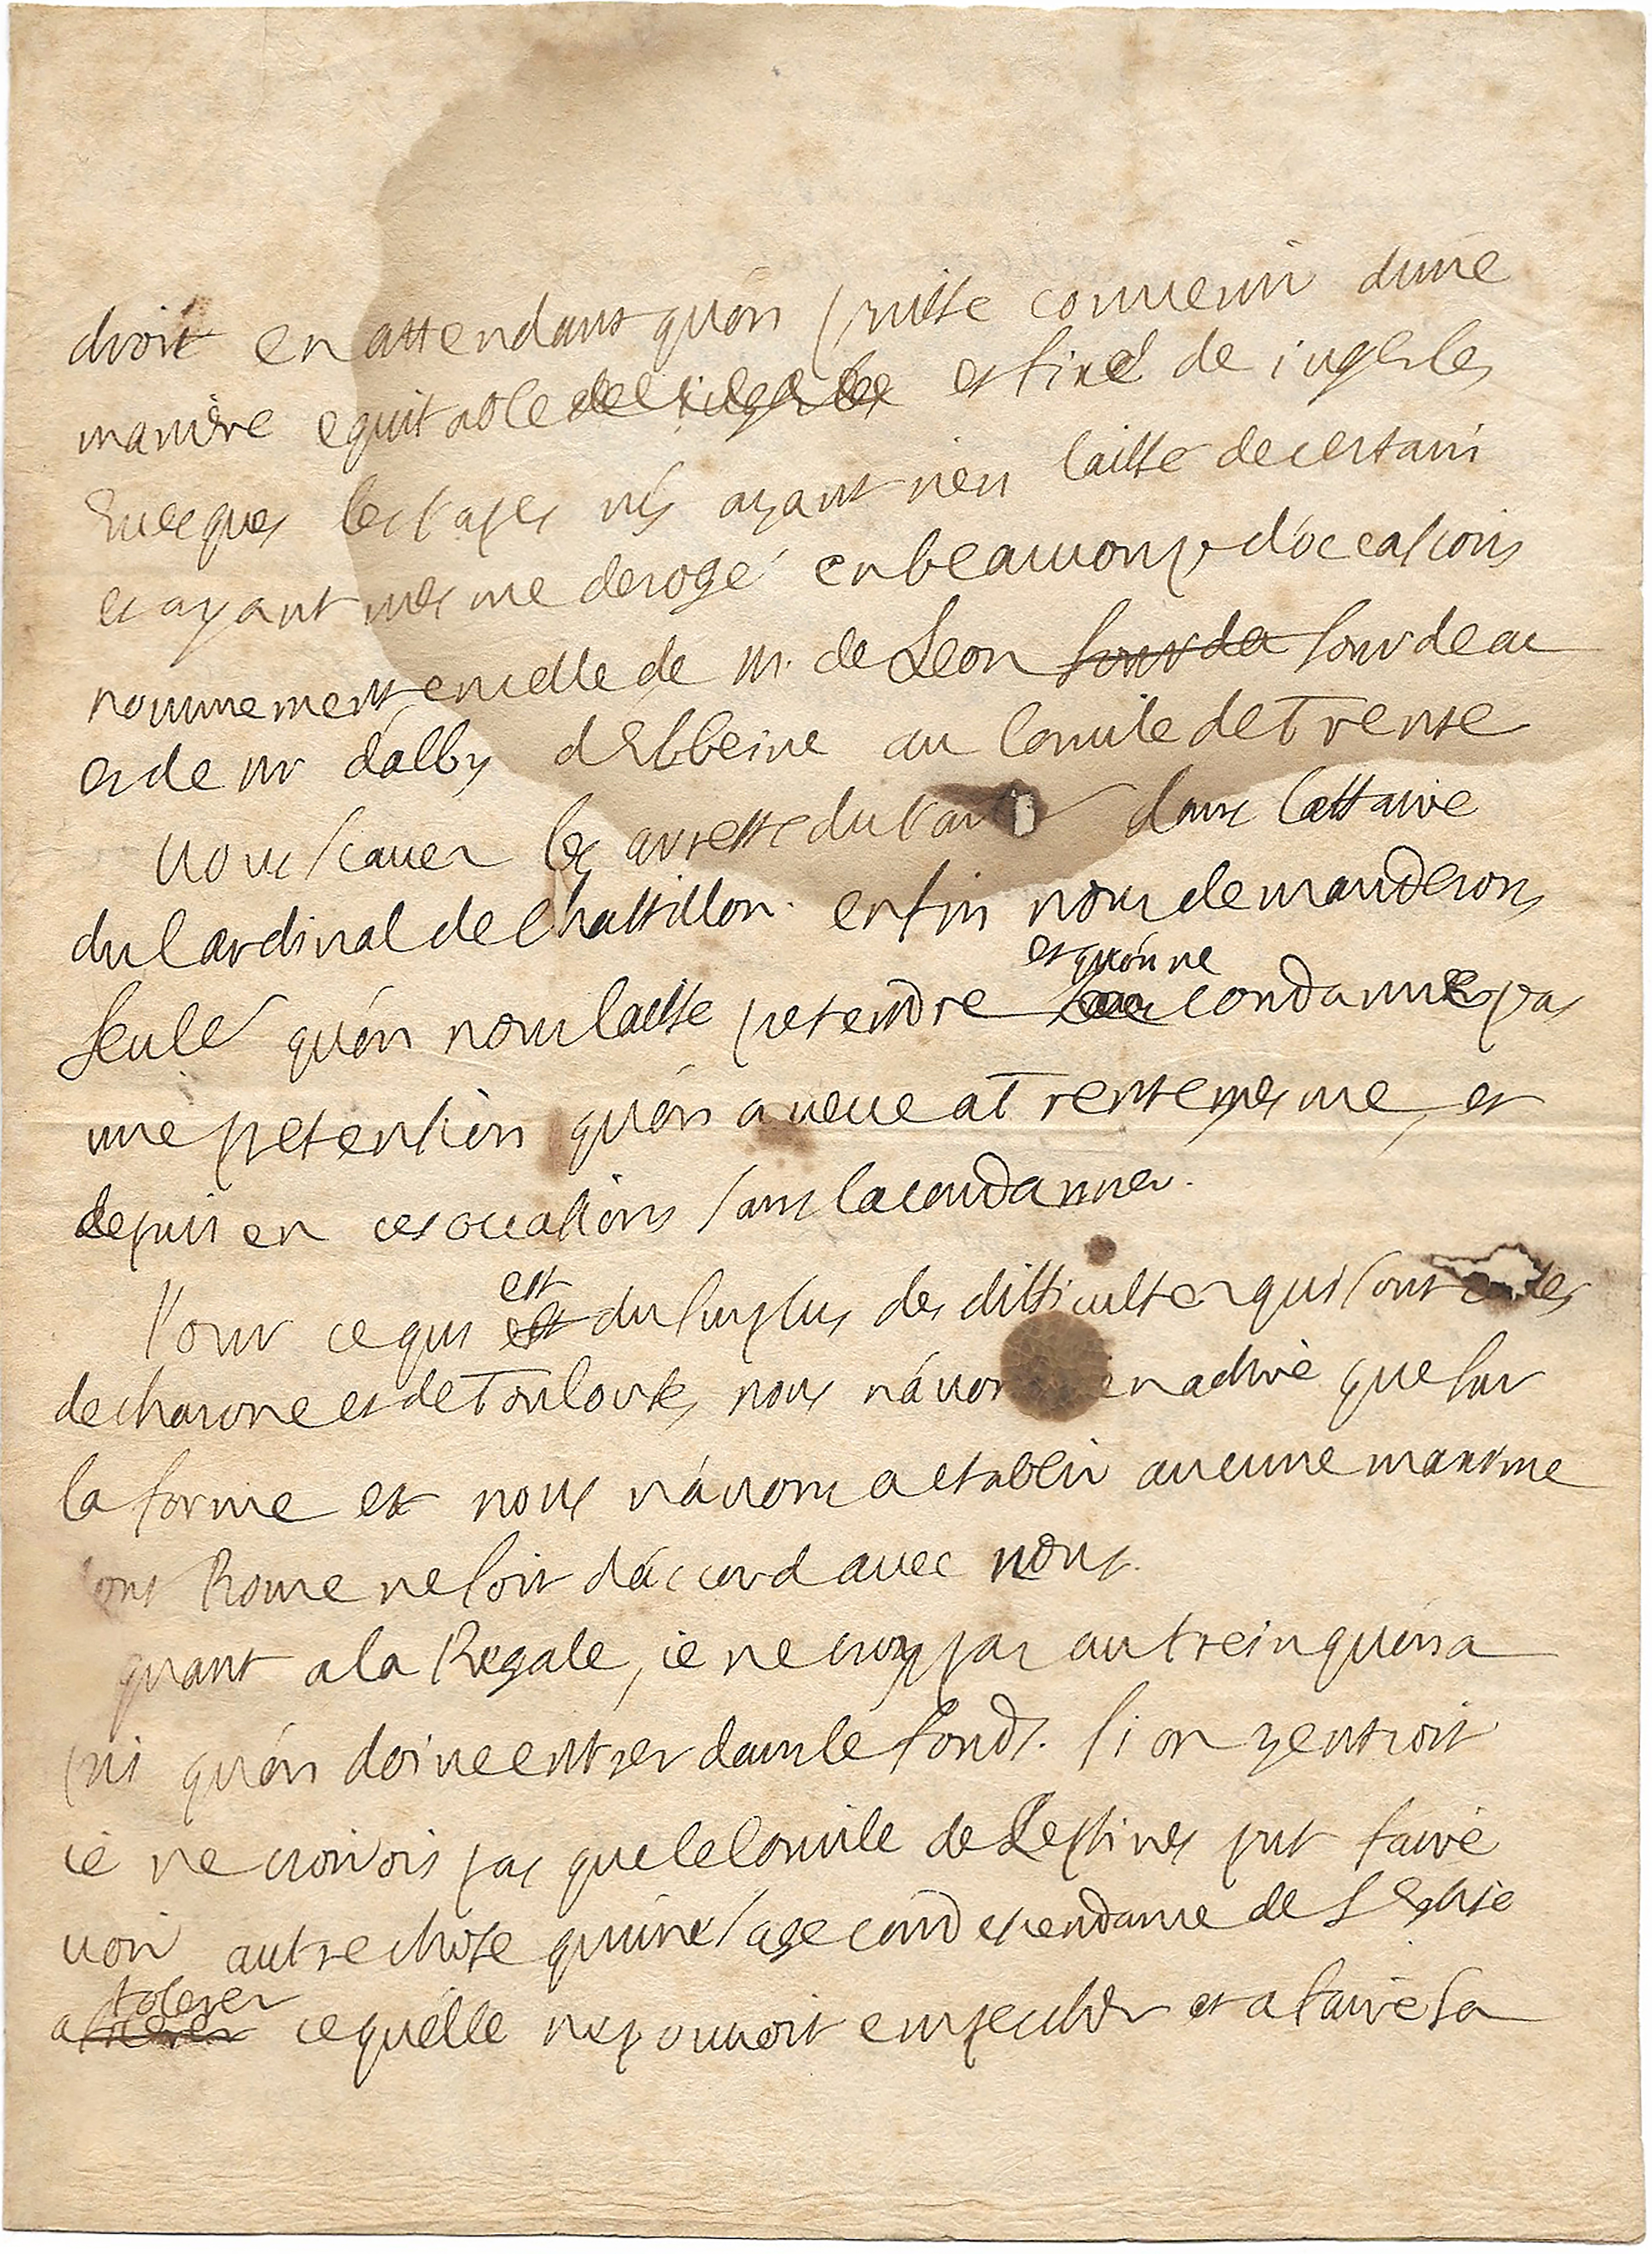 droit en attendant qu'on puisse convenir d'une
manière equitable et fixe de iuger les
Evesques les papes n'y ayant rien laissé de certain
et ayant mesme derogé en beaucoup d'occasions
nommement en celle de m. de Leon sourdeac
et de mr d'alby d'Elbeine au Concile de Trente
vous scaues les arrests du par dans l'affaire
du Cardinal de Chastillon. enfin nous demanderons
seule qu'on nous laisse pretendre et qu'on ne condanne pas
une pretention qu'on a veue a Trente mesme, et
depuis en ces occasions sans la condanner.
Pour ce qui est du surplus des difficultez qui sont
de charone et de Toulouse, nous n'auons rien a dire que sur
la forme et nous n'auons a establir aucune maxime
dont Rome ne soit d'accord avec nous.
quant a la Regale, ie ne croy pas autrein qu'on a
puis qu'on doiue entrer dans le fonds. si on y entroit
ie ne croirois pas que le Concile de Lestines put faire
voir autre chose qu'une sage condescendance de l'Eglise
a tolerer ce qu'elle ne pouuoit empescher et a faire sa